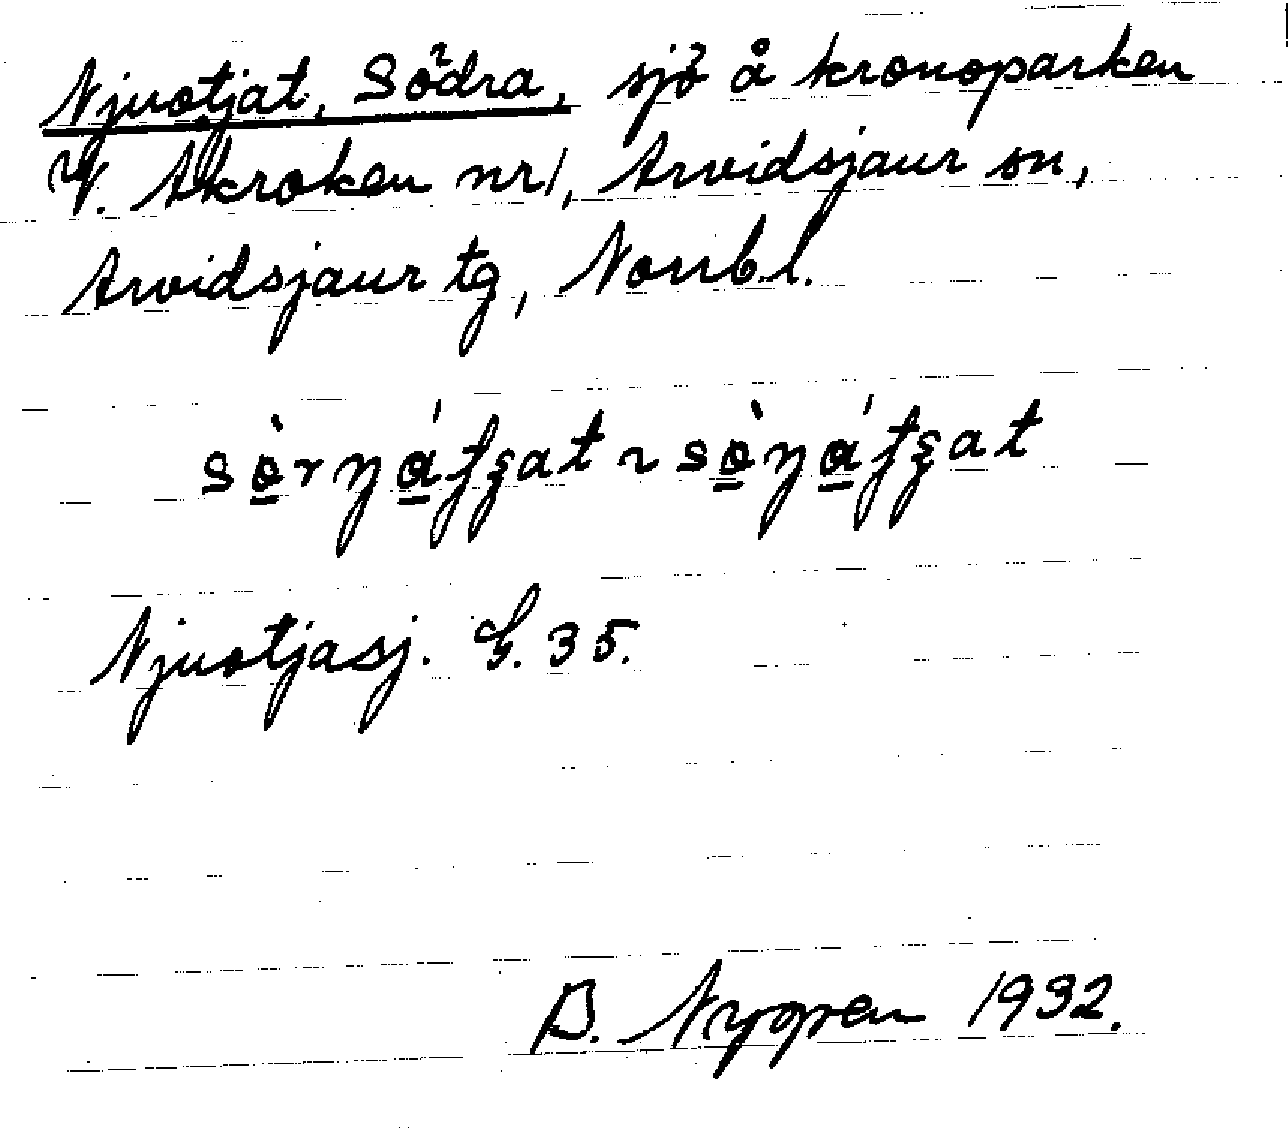 Njuotjat, Södra, sjö å kronoparken
V. Akroken nr 1, Arvidsjaur sn,
Arvidsjaur tg, Norrb. l.
Njuotjasj. G. 35.
B. Nygren 1932.